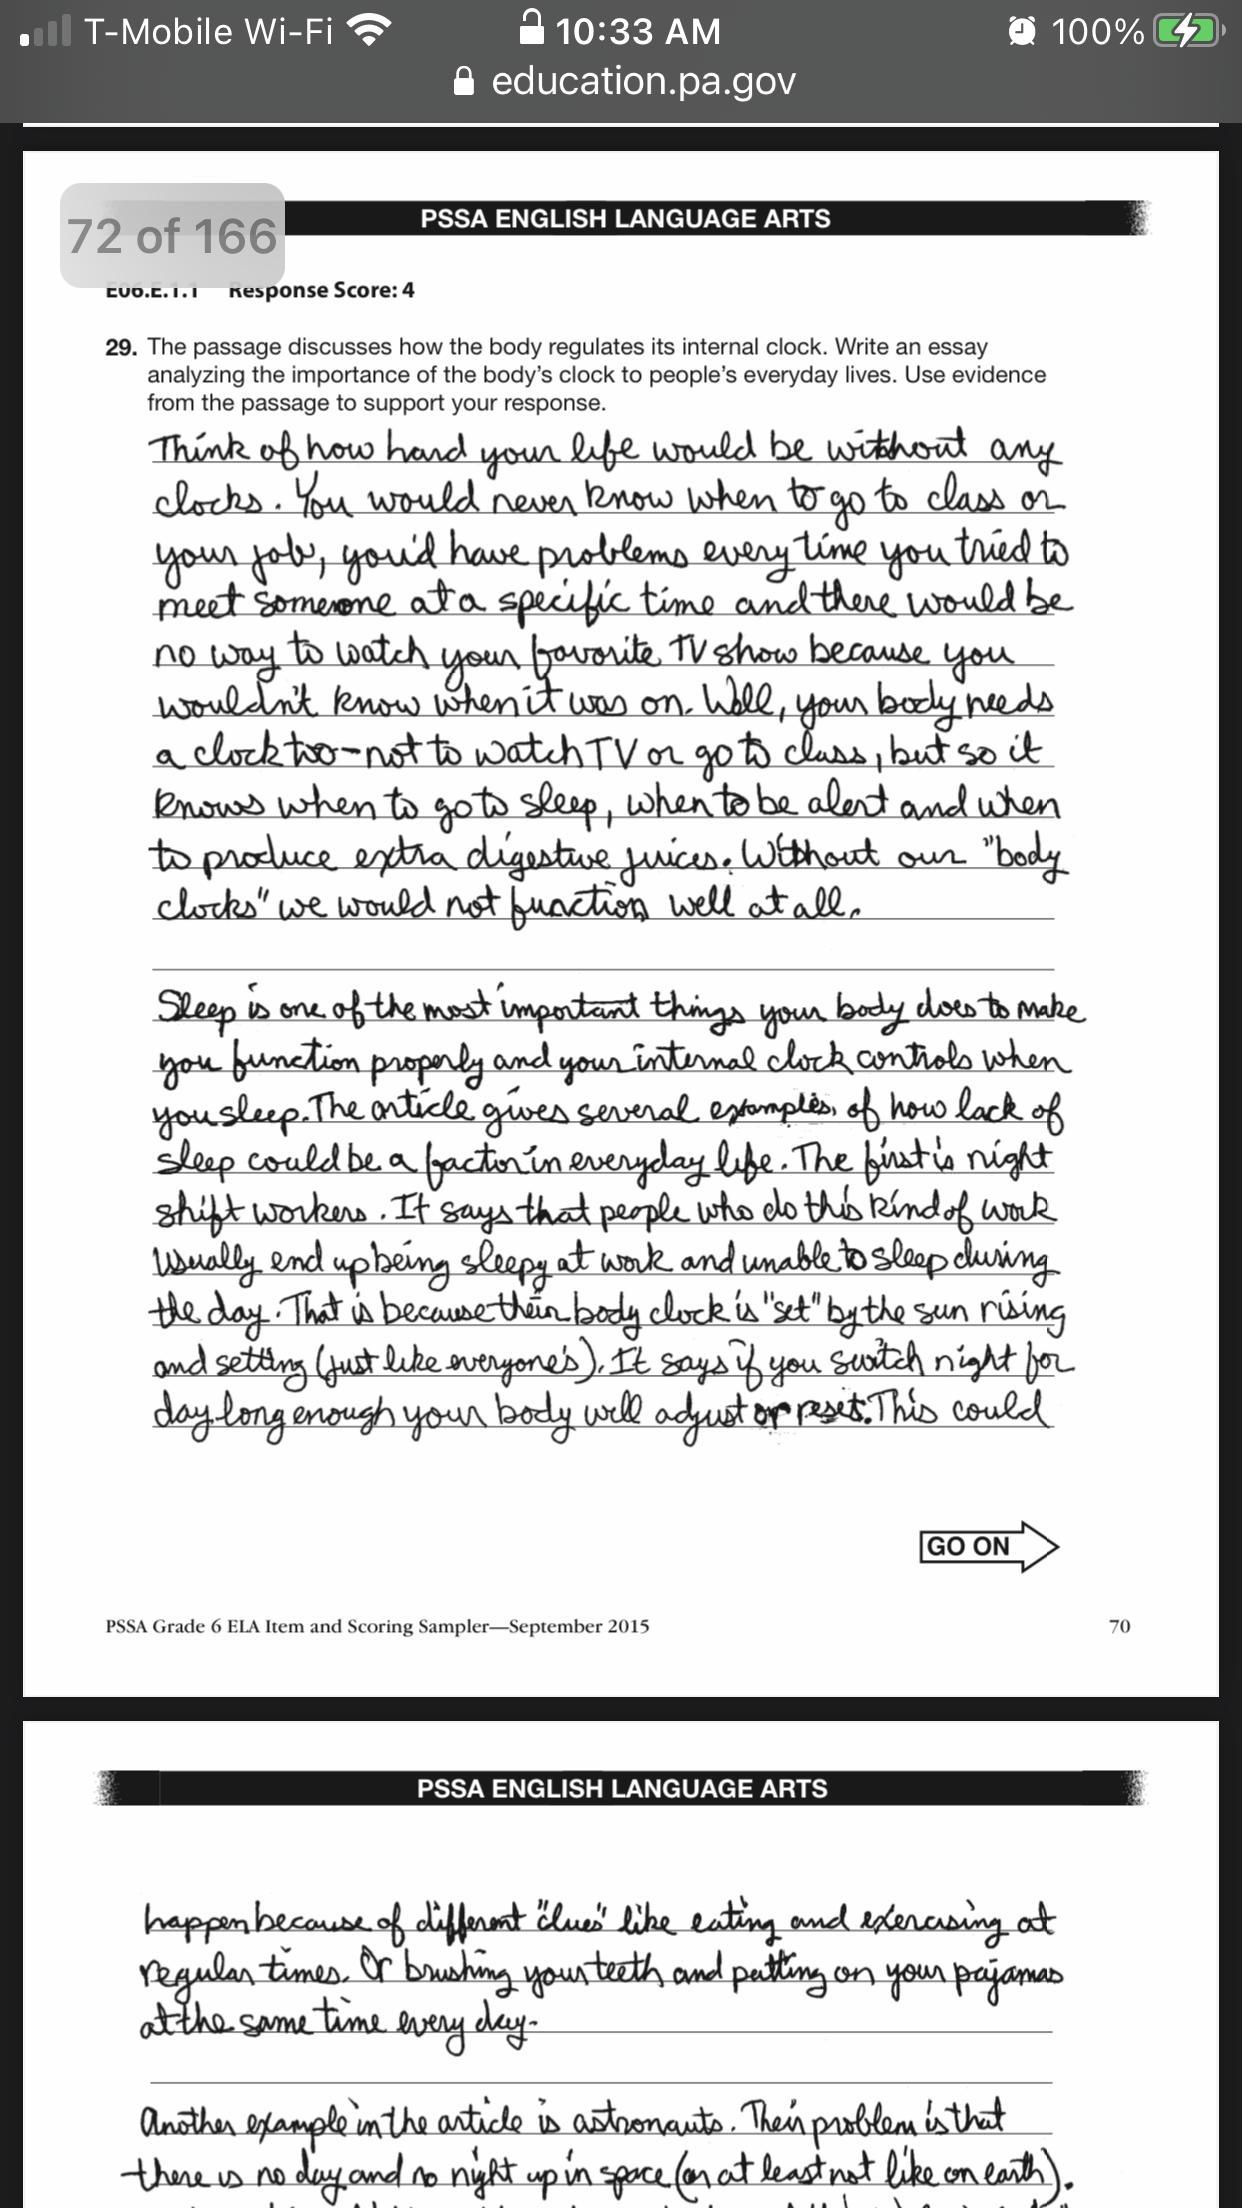 T-Mobile Wi-Fi 10:33 AM 100%
education.pa.gov
72 of 166
PSSA ENGLISH LANGUAGE ARTS
E06.E.1.1 Response Score: 4
29. The passage discusses how the body regulates its internal clock. Write an essay
analyzing the importance of the body's clock to people's everyday lives. Use evidence
from the passage to support your response.
Think of how hard your life would be without any
clocks. You would never know when to go to class or
your job, you'd have problems every time you tried to
meet someone at a specific time and there would be
no way to watch your favorite TV show because you
wouldn't know when it was on. Well, your body needs
a clock too-not to watch TV or go to class, but so it
knows when to go to sleep, when to be alert and when
to produce extra digestive juices. Without our "body
clocks" we would not function well at all.
Sleep is one of the most important things your body does to make
you function properly and your internal clock controls when
you sleep. The article gives several examples, of how lack of
sleep could be a factor in everyday life. The first is night
shift workers. It says that people who do this kind of work
usually end up being sleepy at work and unable to sleep during
the day. That is because their body clock is "set" by the sun rising
and setting (just like everyone's). It says if you switch night for
day long enough your body will adjust or reset. This could
GO ON
PSSA Grade 6 ELA Item and Scoring Sampler—September 2015 70
PSSA ENGLISH LANGUAGE ARTS
happen because of different "clues" like eating and exercising at
regular times. Or brushing your teeth and putting on your pajamas
at the same time every day.
Another example in the article is astronauts. Their problem is that
there is no day and no night up in space (or at least not like on earth).